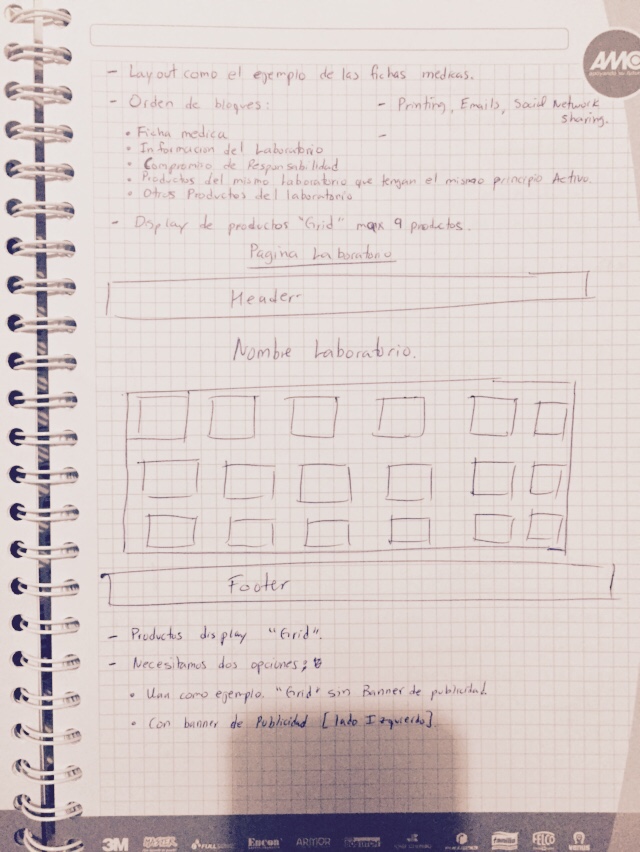 AMC
- Layout como el ejemplo de las fichas medicas.
- Orden de bloques:
- Printing, Emails, Social Network sharing.
-
• Ficha medica
• Informacion del Laboratorio
• Compromiso de Responsabilidad
• Productos del mismo Laboratorio que tengan el mismo principio Activo.
• Otros Productos del laboratorio
- Display de productos "Grid" max 9 productos.
Pagina Laboratorio
Header
Nombre Laboratorio.
Footer
- Productos display "Grid".
- Necesitamos dos opciones:
• Una como ejemplo. "Grid" sin Banner de publicidad.
• Con banner de Publicidad [lado Izquierdo]
3M
Encon
ARMOR
familia